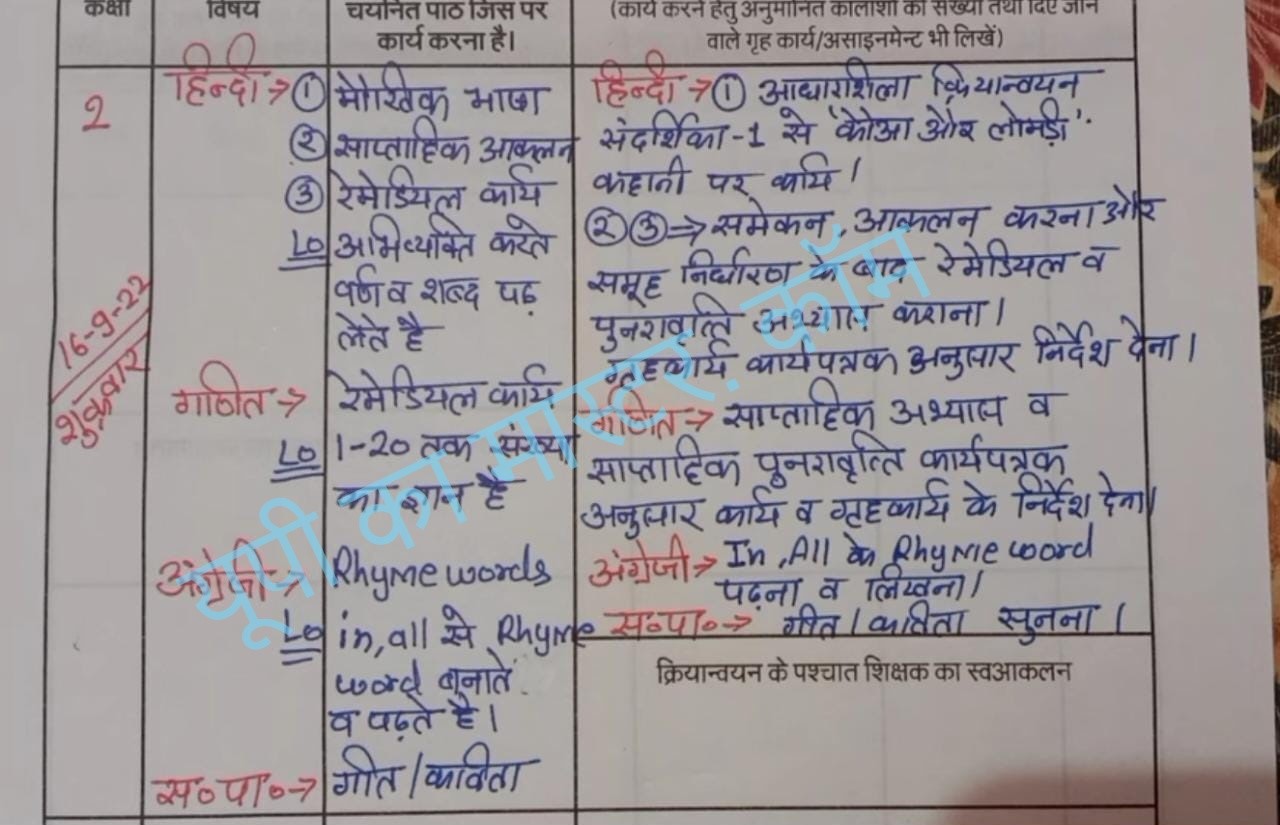 कक्षा
विषय
चयनित पाठ जिस पर
कार्य करना है।
(कार्य करने हेतु अनुमानित कालांशों की संख्या तथा दिए जाने
वाले गृह कार्य/असाइनमेंट भी लिखें)
2
16-9-22
शुक्रवार
हिन्दी→ ① मौखिक भाषा
② साप्ताहिक आकलन
③ रेमेडियल कार्य
LO अभिव्यक्ति करते
वर्ण व शब्द पढ़
लेते है
गणित → रेमेडियल कार्य
LO 1-20 तक संख्या
का ज्ञान है
अंग्रेजी→ Rhyme words
LO in, all से Rhyme
word बनाते
व पढ़ते है।
स॰पा॰→ गीत/कविता
हिन्दी →① आधारशिला क्रियान्वयन
संदर्शिका-1 से 'कौआ और लोमड़ी'
कहानी पर कार्य।
②③→ समेकन, आकलन करना और
समूह निर्धारण के बाद रेमेडियल व
पुनरावृत्ति अभ्यास कराना।
गृहकार्य कार्यपत्रक अनुसार निर्देश देना।
गणित → साप्ताहिक अभ्यास व
साप्ताहिक पुनरावृत्ति कार्यपत्रक
अनुसार कार्य व गृहकार्य के निर्देश देना।
अंग्रेजी→ In, All के Rhyme word
पढ़ना व लिखना।
स॰पा॰→ गीत/कविता सुनना।
क्रियान्वयन के पश्चात शिक्षक का स्वआकलन
यूपी का मास्टर.कॉम